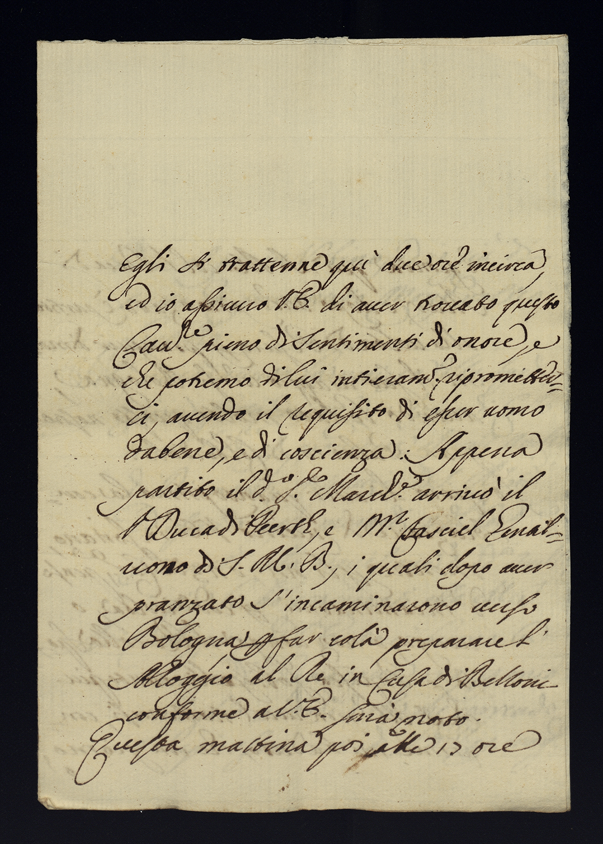 Egli si trattenne quì due ore incirca,
ed io assicuro V.E. di aver trovato questo
Cau.re pieno di Sentimenti di onore, e
che potremo di lui intieram.te riprometter=
ci, avendo il requisito di esser uomo
dabene, e di coscienza. Appena
partito il d.o S.re March.e arrivò il
Duca di Peerth, e M.r
di S. M. B., i quali dopo aver
pranzato s'incaminarono verso
Bologna p far colà preparare l'
Alloggio al Re in Casa di Belloni
conforme a V.E. sarà noto.
Questa mattina poi alle 13 ore